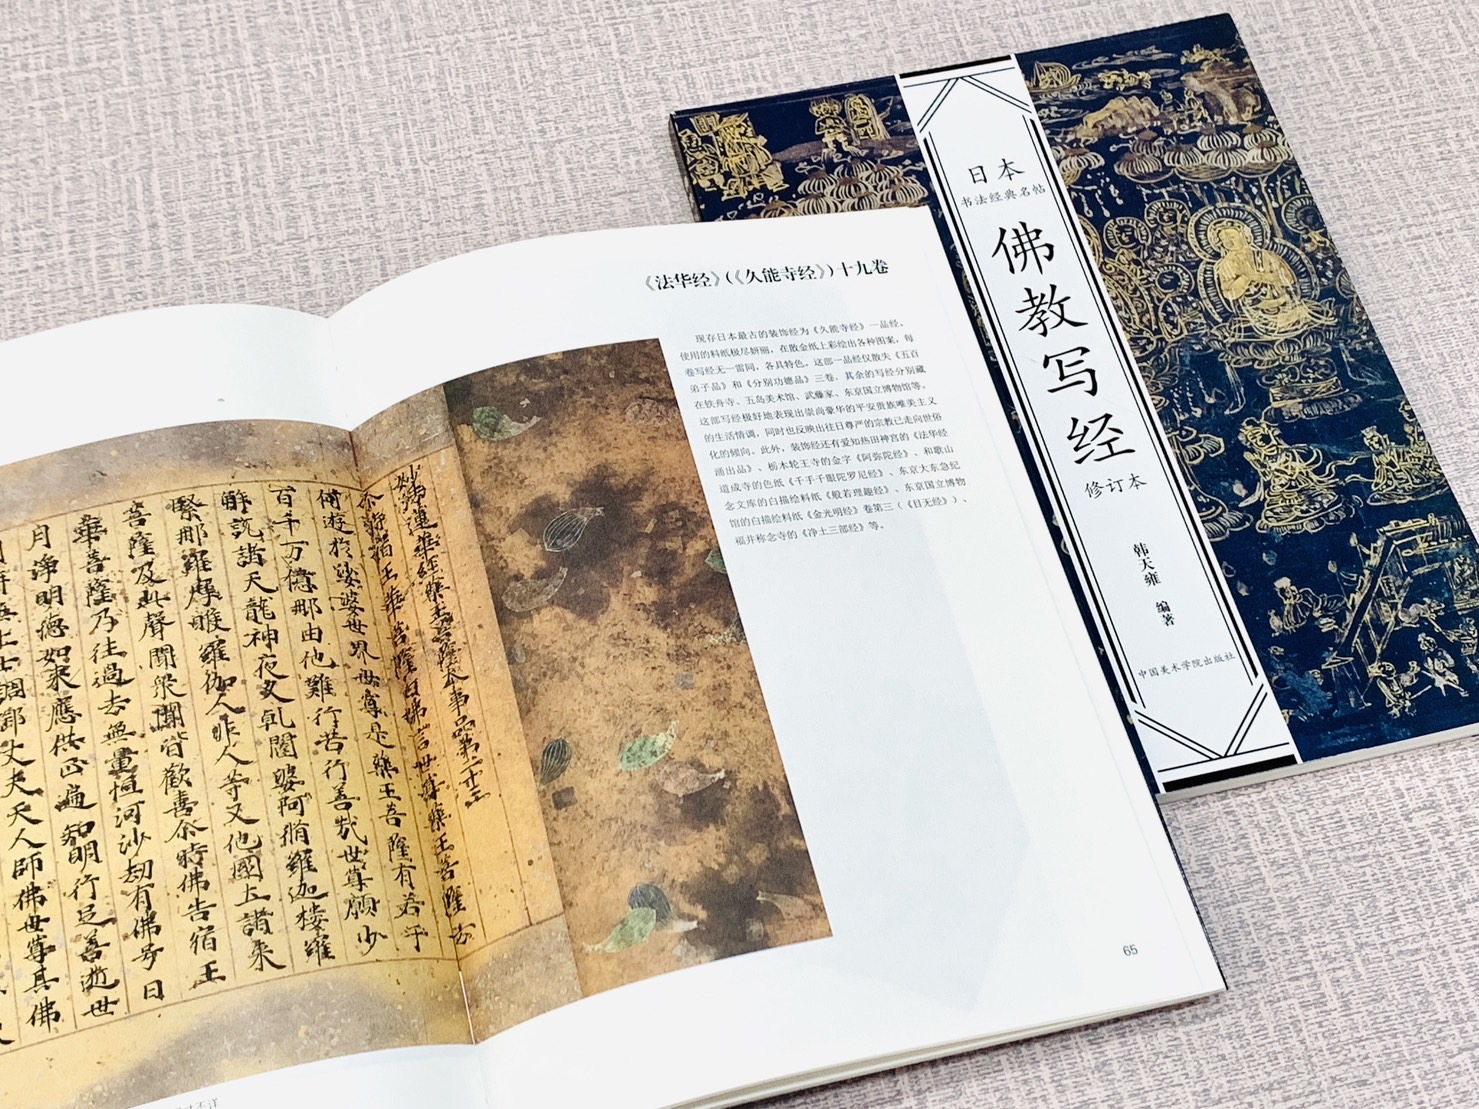 日本
书法经典名帖
佛教写经
修订本
韩天雍 编著
中国美术学院出版社
《法华经》(《久能寺经》)十九卷
现存日本最古的装饰经为《久能寺经》一品经。
使用的料纸极尽妍丽，在散金纸上彩绘出各种图案，每
卷写经无一雷同，各具特色，这部一品经仅散失《五百
弟子品》和《分别功德品》三卷，其余的写经分别藏
在铁舟寺、五岛美术馆、武藤家、东京国立博物馆等。
这部写经极好地表现出崇尚豪华的平安贵族唯美主义
的生活情调，同时也反映出往日尊严的宗教已走向世俗
化的倾向。此外，装饰经还有爱知热田神宫的《法华经
涌出品》、栃木轮王寺的金字《阿弥陀经》、和歌山
道成寺的色纸《千手千眼陀罗尼经》、东京大东急纪
念文库的白描绘料纸《般若理趣经》、东京国立博物
馆的白描绘料纸《金光明经》卷第三（《目无经》）、
福井称念寺的《净土三部经》等。
65
妙法蓮華經藥王菩薩本事品第二十三
尒時宿王華菩薩白佛言世尊藥王菩薩云
何遊於娑婆世界世尊是藥王菩薩有若干
百千万億那由他難行苦行善哉世尊願少
解説諸天龍神夜叉乹闥婆阿脩羅迦樓羅
緊那羅摩睺羅伽人非人等又他國土諸来
菩薩及此聲聞衆聞皆歡喜尒時佛告宿王
華菩薩乃往過去無量恒河沙劫有佛号日
月淨明德如來應供正遍智明行足善逝世
無上士調御丈夫天人師佛世尊其佛